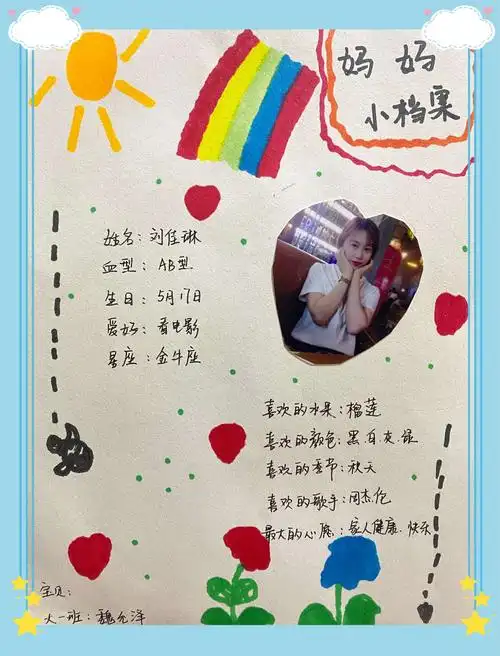 妈妈
小档案
姓名：刘佳琳
血型：AB型
生日：5月17日
爱好：看电影
星座：金牛座
喜欢的水果：榴莲
喜欢的颜色：黑.白.灰.绿
喜欢的季节：秋天
喜欢的歌手：周杰伦
最大的心愿：家人健康.快乐
宝贝：
大一班：魏允泽